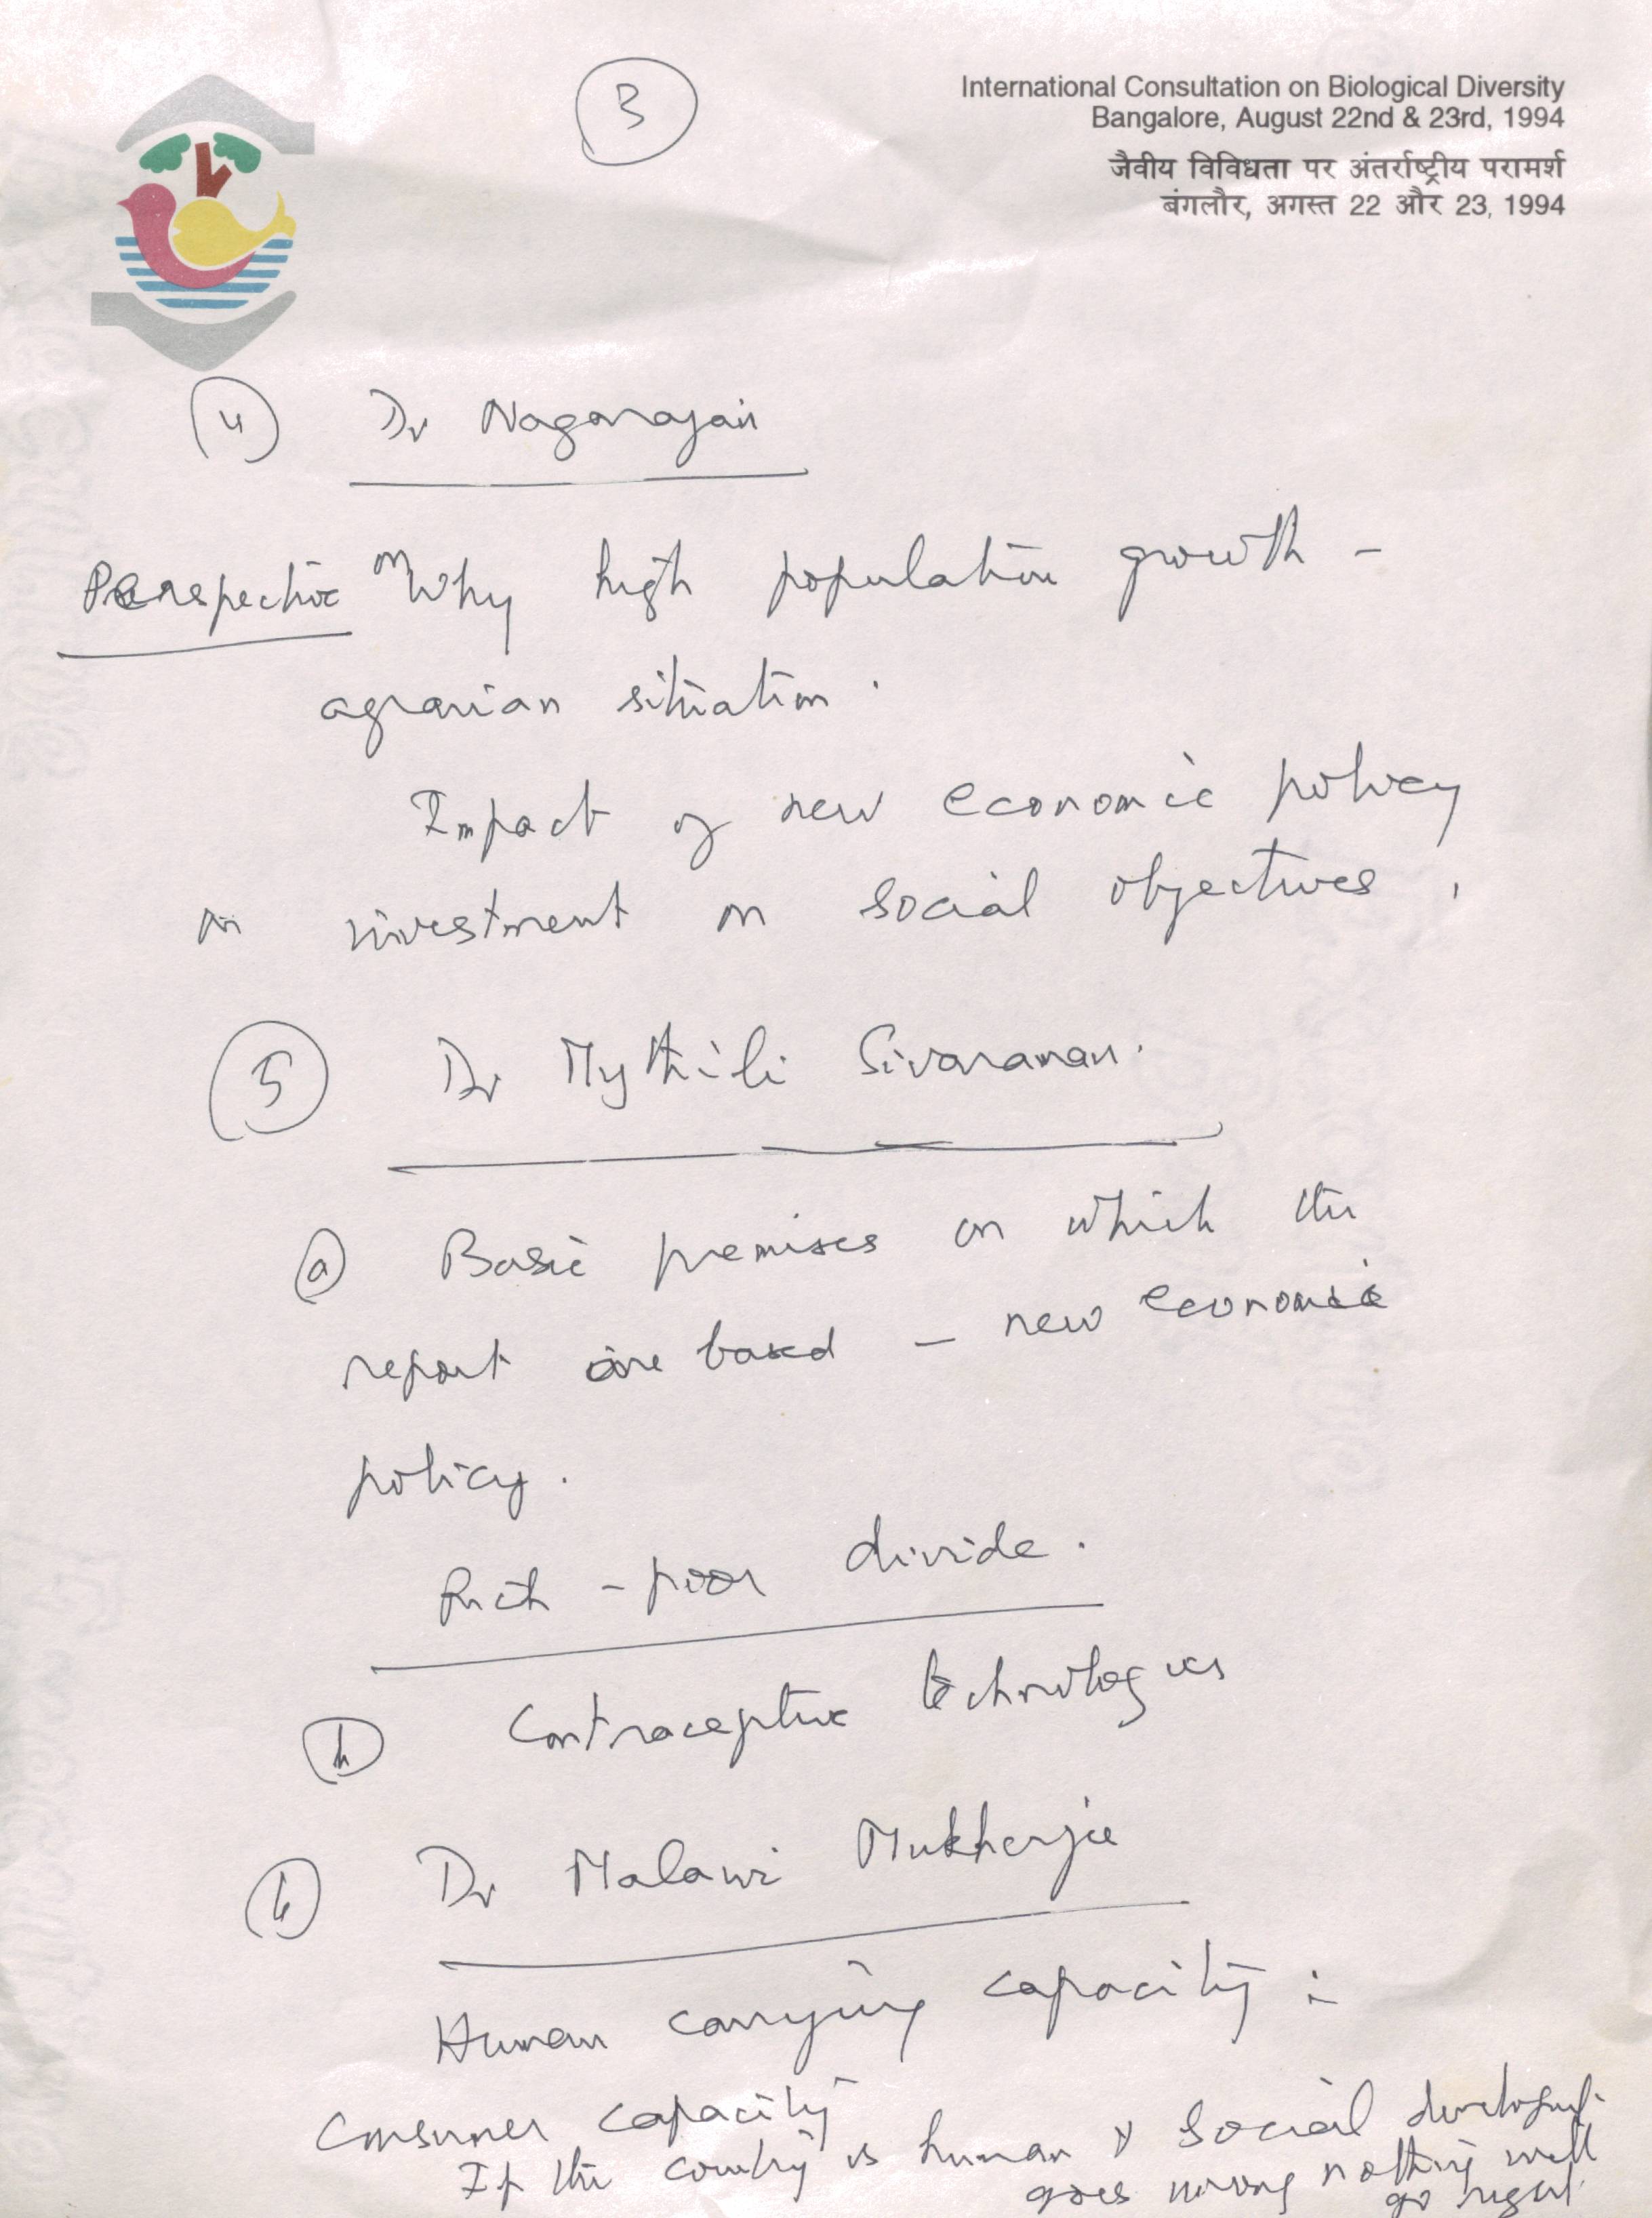 3
International Consultation on Biological Diversity
Bangalore, August 22nd & 23rd, 1994
जैवीय विविधता पर अंतर्राष्ट्रीय परामर्श
बंगलौर, अगस्त 22 और 23, 1994
4 Dr Nagarajan
Perspective on Why high population growth –
agrarian situation.
Impact of new economic policy
on investment on social objectives.
5 Dr Mythili Sivaraman.
a Basic premises on which the
report are based – new economic
policy.
Rich – poor divide.
b Contraceptive technologies
6 Dr Malawi Mukherjee
Human carrying capacity :
Consumer capacity
If the country is human & social
goes wrong nothing will
go right